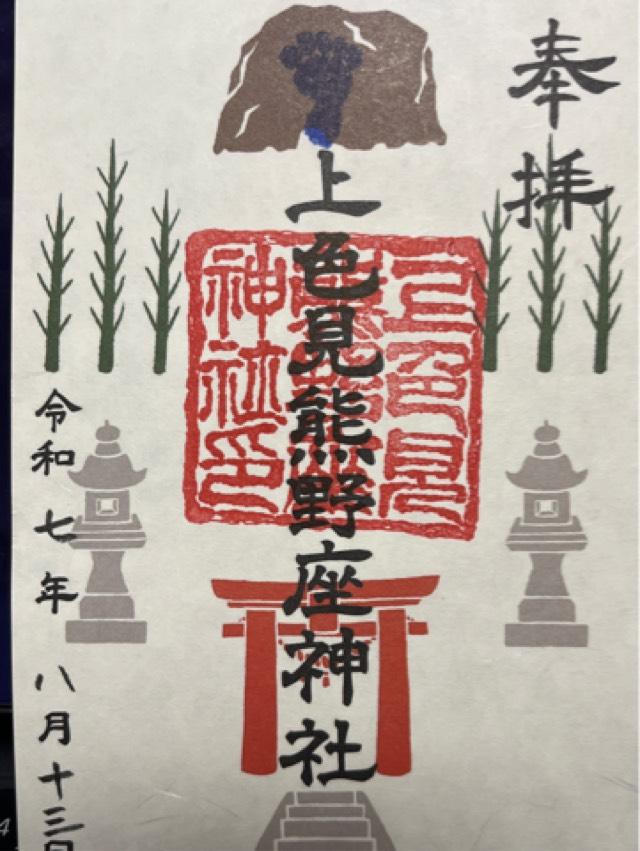 奉拝
上色見熊野座神社
上色見
神社印
令和七年八月十三日